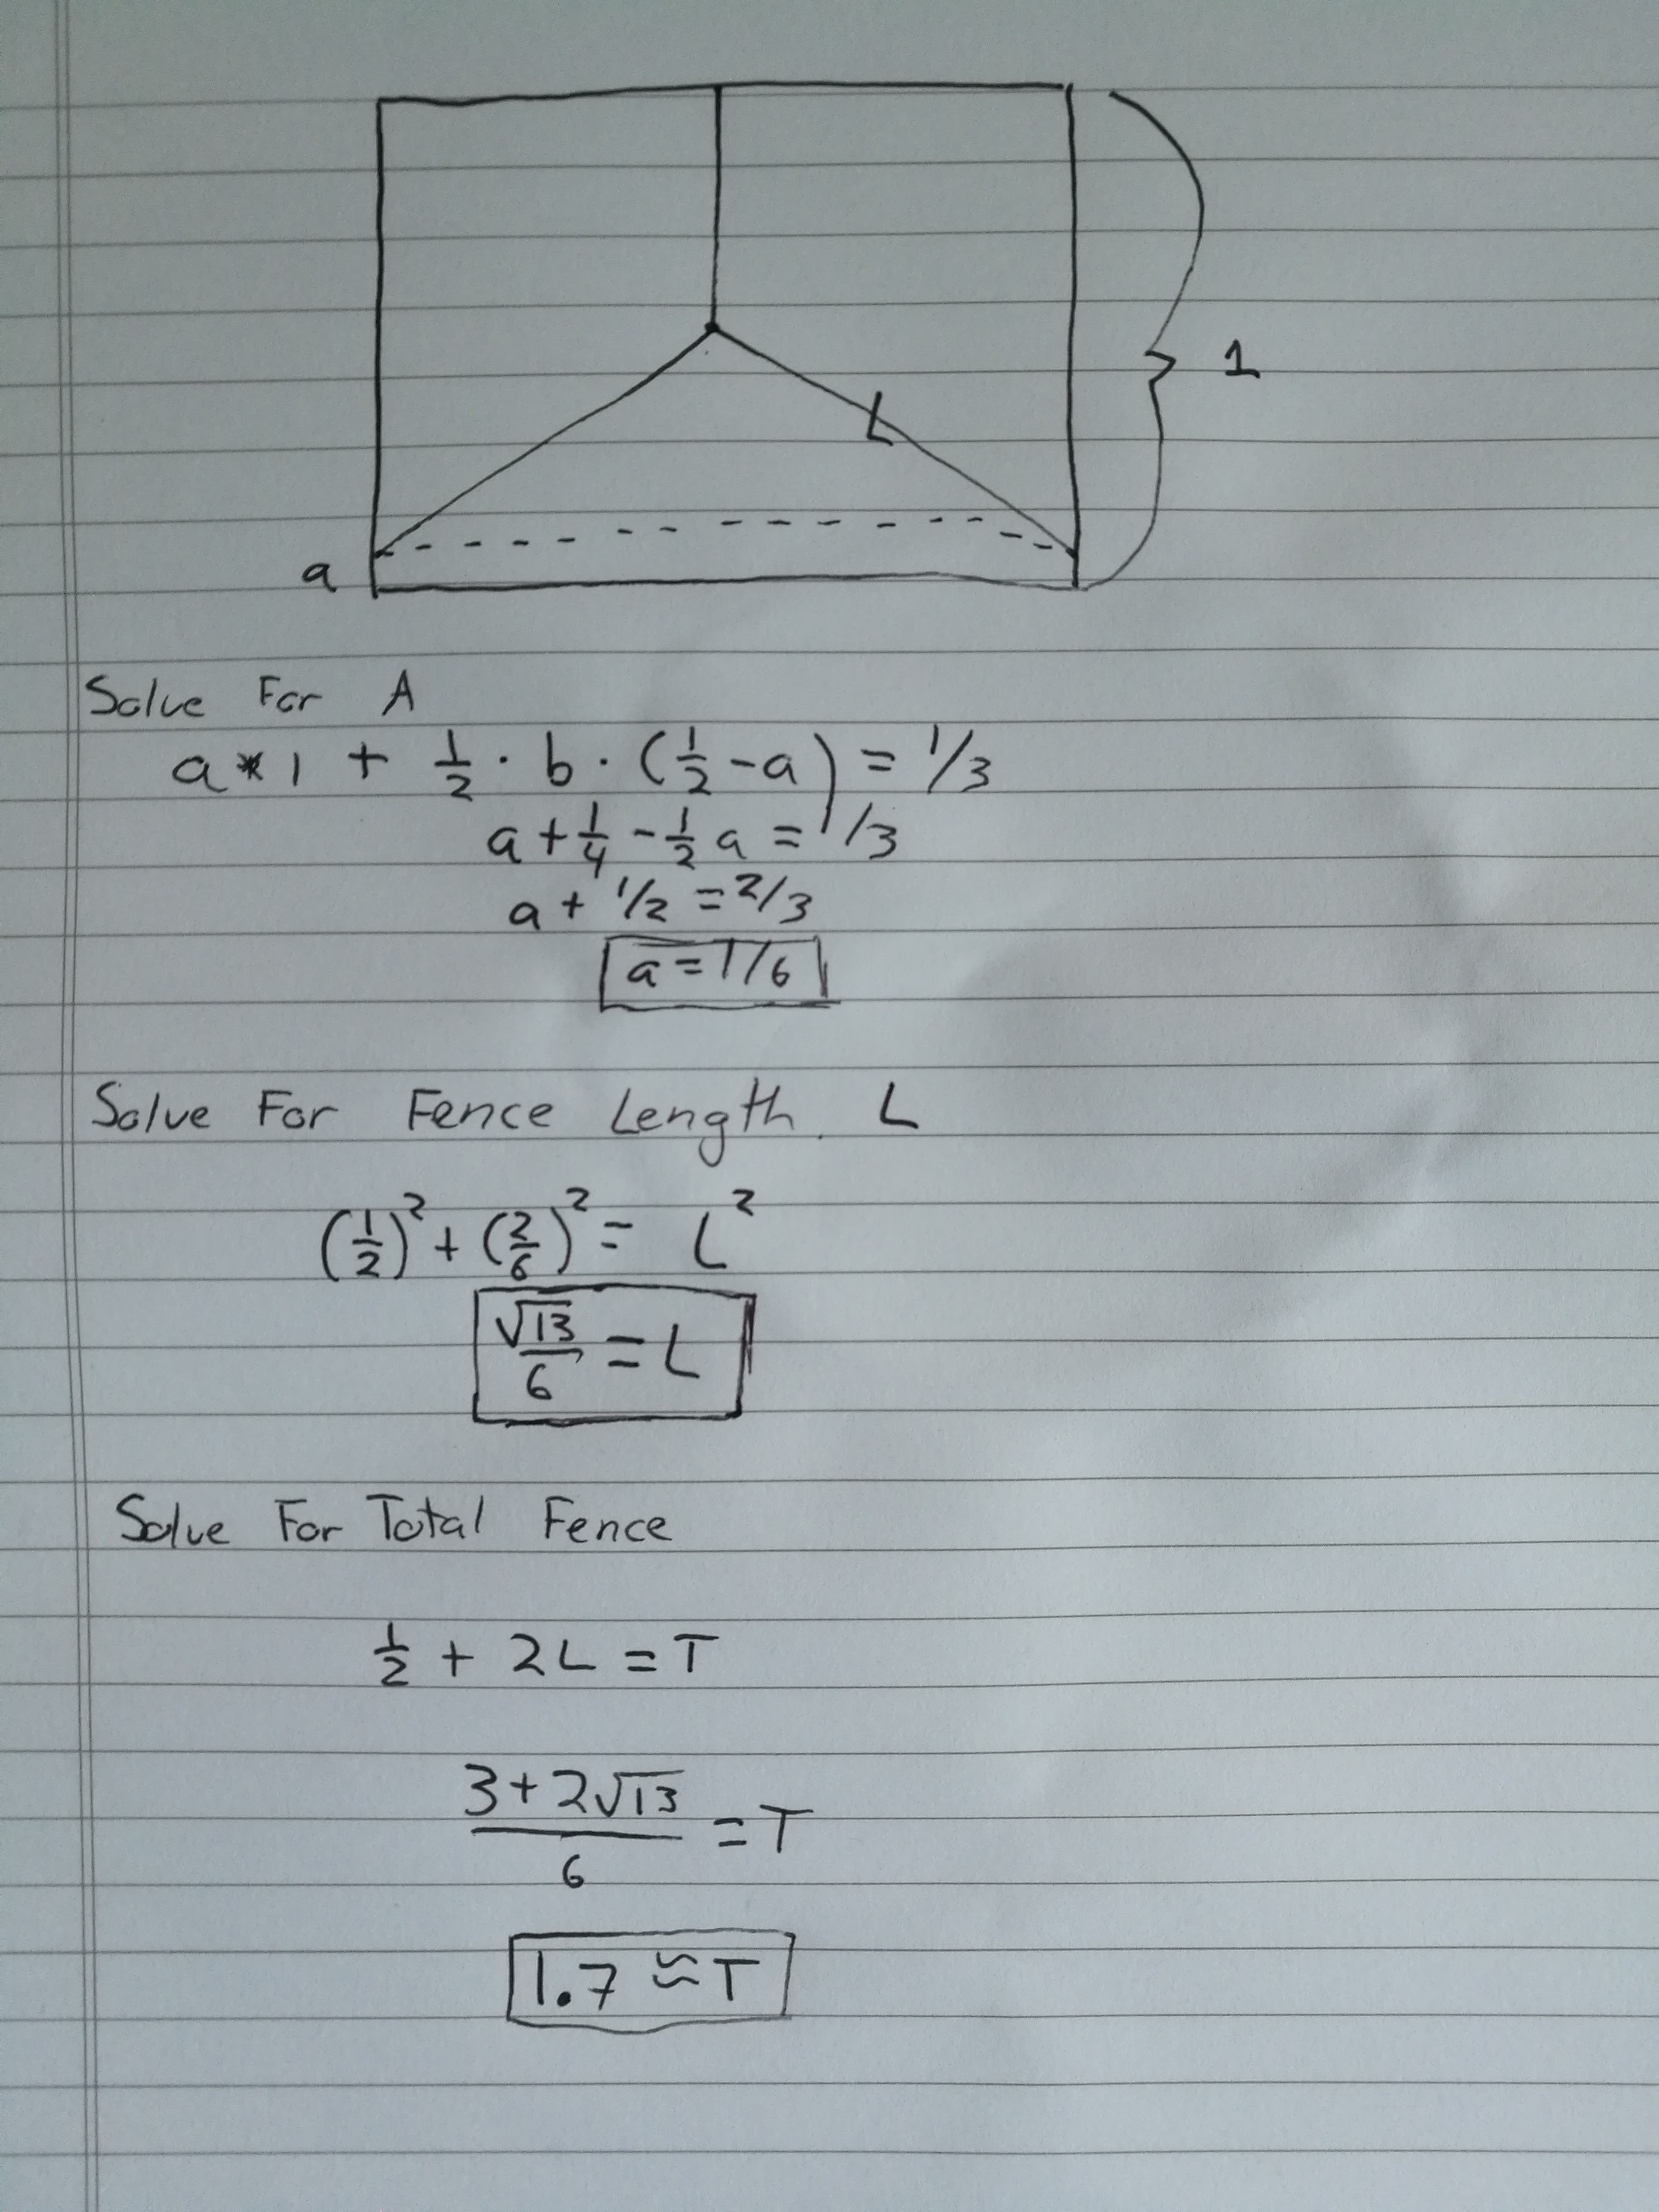 L
1
a
Solve For A
a * 1 + 1/2 · b · (1/2 - a) = 1/3
a + 1/4 - 1/2 a = 1/3
a + 1/2 = 2/3
a = 1/6
Solve For Fence Length. L
(1/2)² + (2/6)² = L²
√13/6 = L
Solve For Total Fence
1/2 + 2L = T
3+2√13/6 = T
1.7 ≈ T